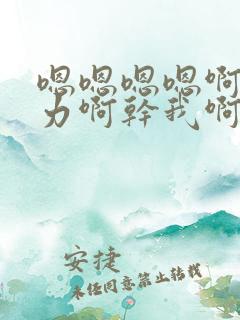 嗯嗯嗯嗯啊
力啊幹我啊
安捷
未经同意禁止转载